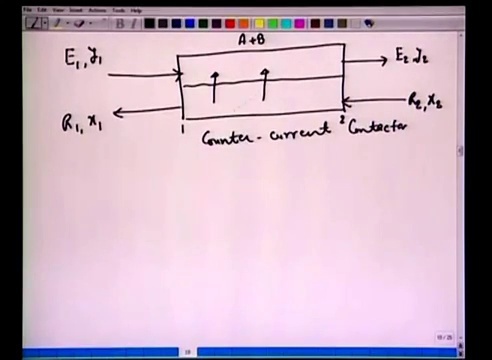 File Edit View Insert Actions Tools Help
A+B
E₁, y₁
E₂, y₂
R₁, x₁
R₂, x₂
1
2
Counter-current Contactor